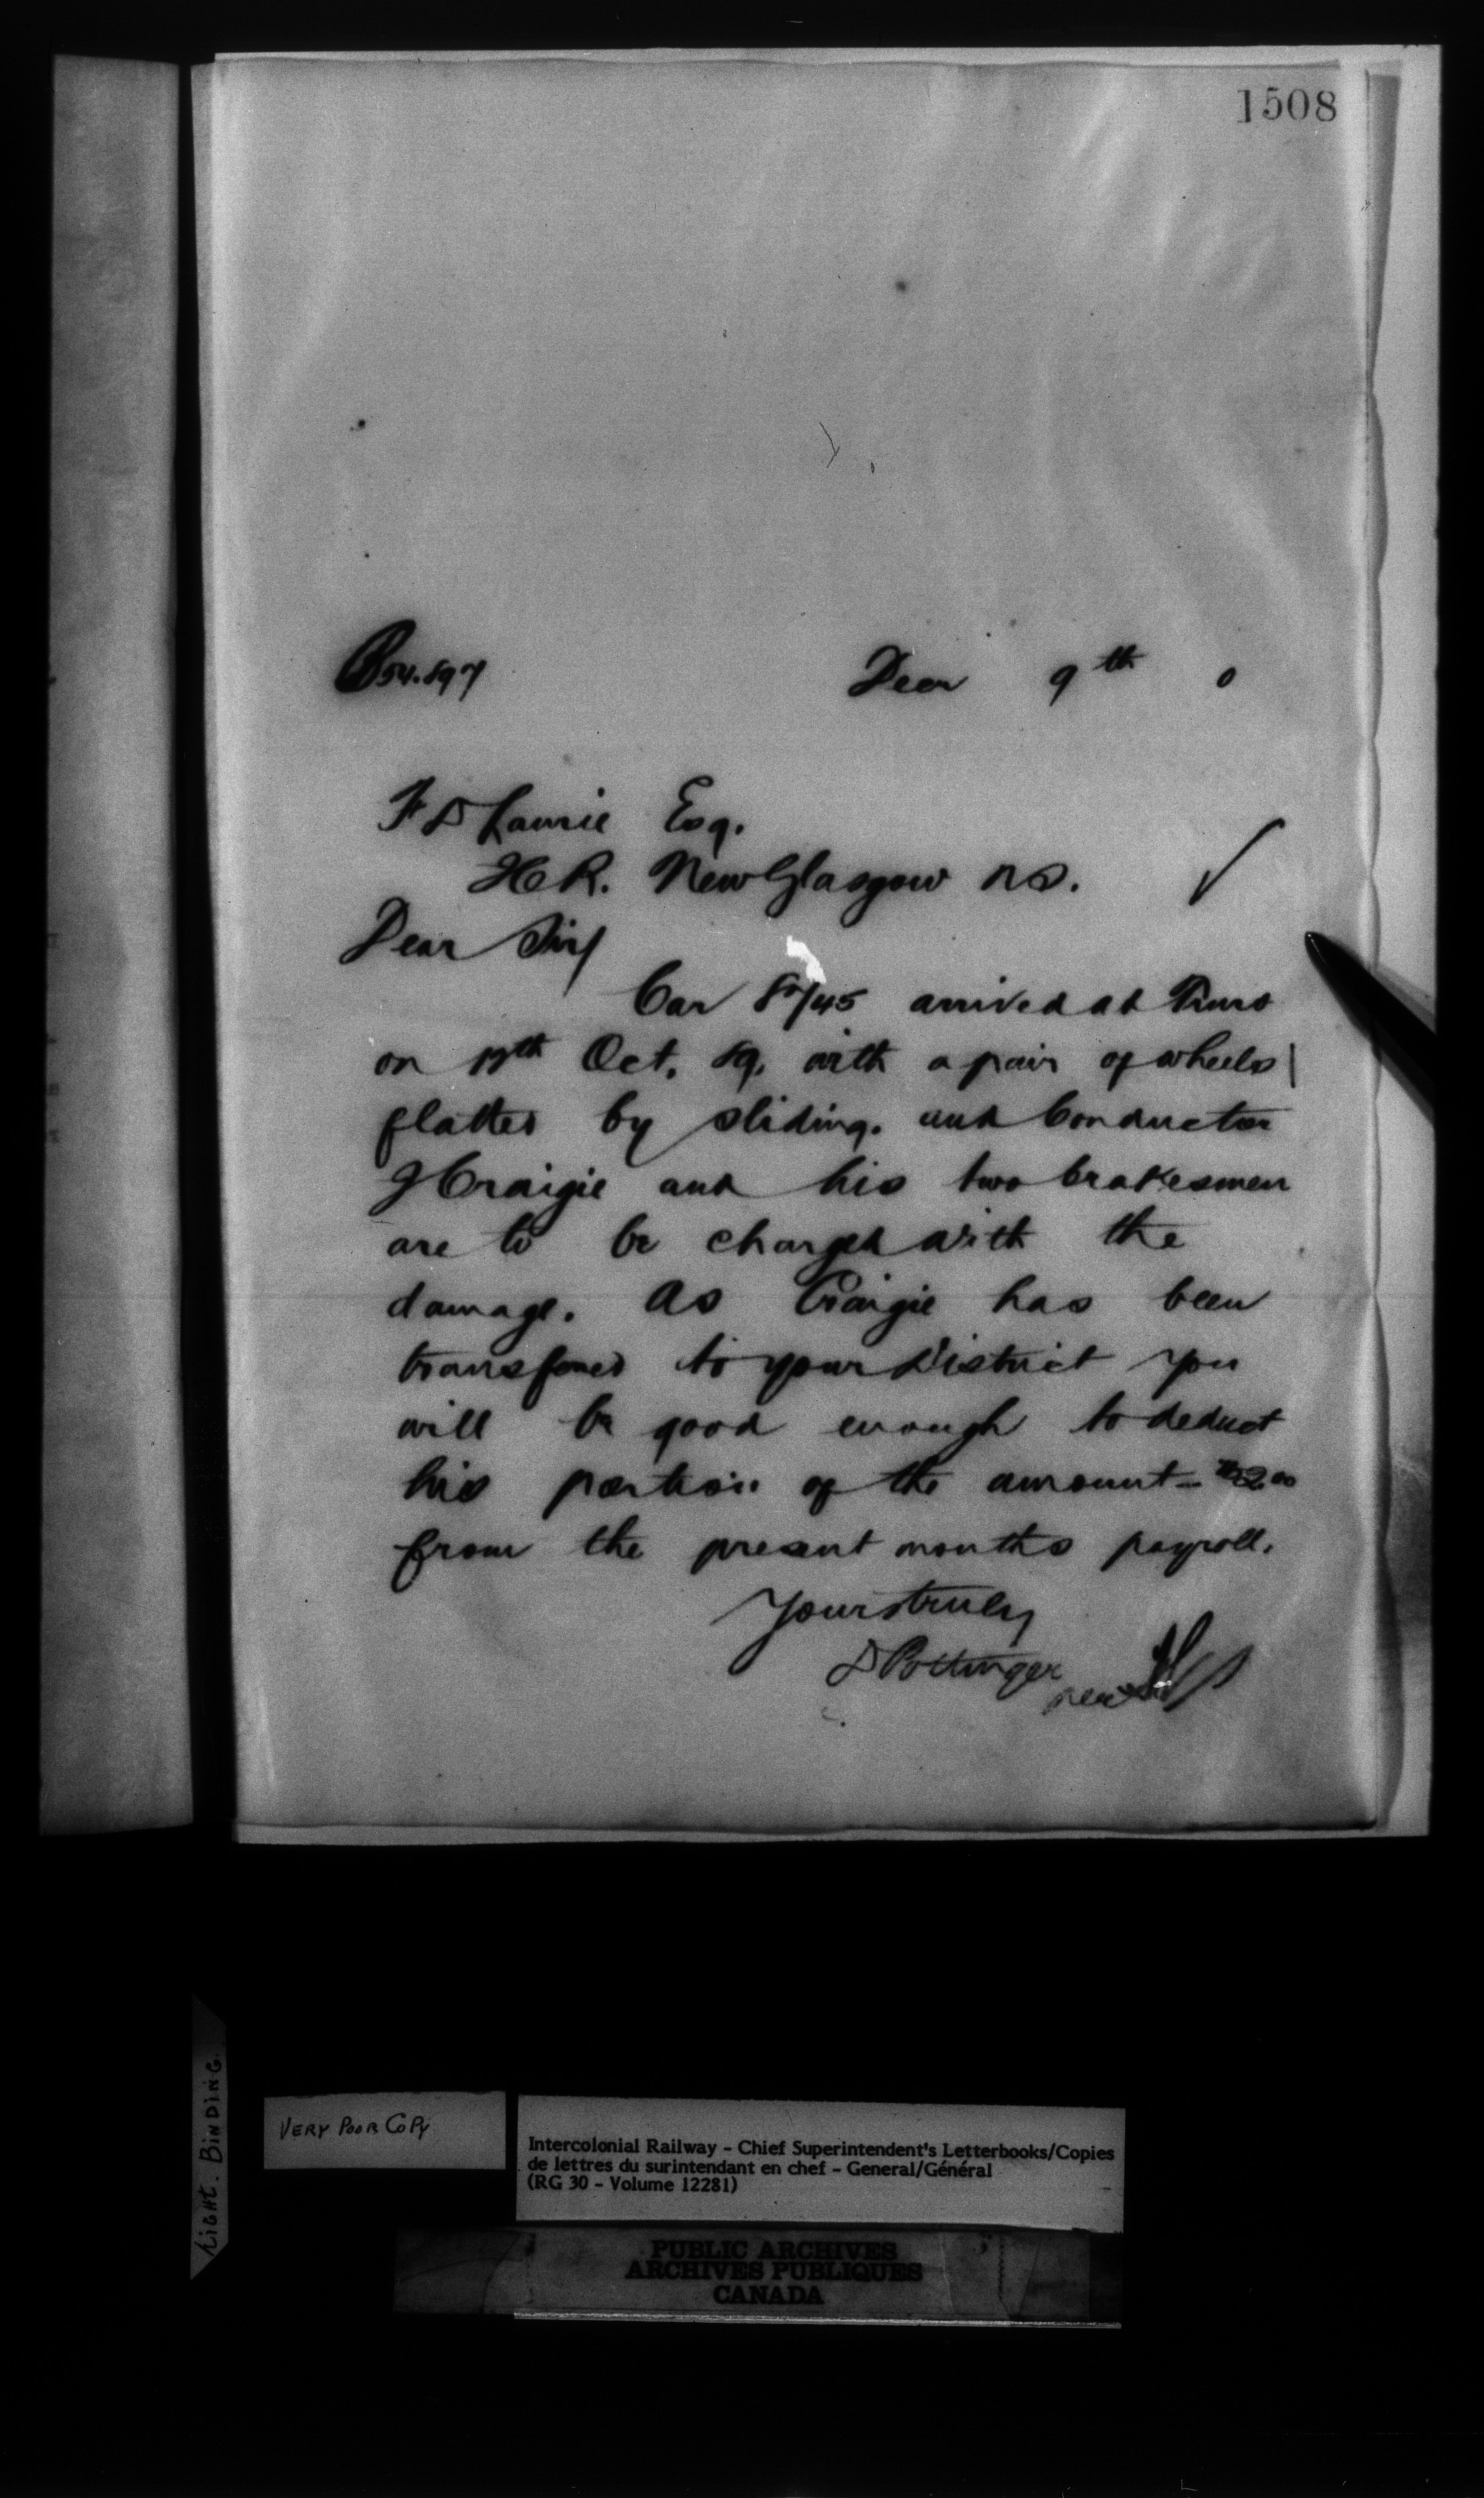 1508
54.897
Decr 9th 0
F D Laurie Esq.
New Glasgow NS.
Dear Sir/
Car arrived at Truro
on Oct. 89. with a pair of wheels
flatted by sliding. and Conductor
J Craigie and his two brakesmen
are to be charged with the
damage. As Craigie has been
transferred to your District you
will be good enough to deduct
his portion of the amount - $2.00
from the present months payroll.
Yours truly
D Pottinger
LIGHT. BINDING.
VERY POOR COPY
Intercolonial Railway – Chief Superintendent's Letterbooks/Copies
de lettres du surintendant en chef – General/Général
(RG 30 – Volume 12281)
PUBLIC ARCHIVES
ARCHIVES PUBLIQUES
CANADA